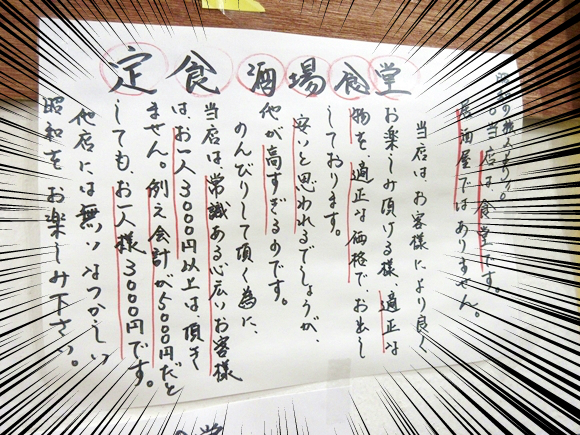 定食酒場食堂
昭和の
当店は食堂です。
居酒屋ではありません。
当店は、お客様により良く
お楽しみ頂ける様、適正な
物を、適正な価格で、お出し
しております。
安いと思われるでしょうが、
他が高すぎるのです。
のんびりして頂く為に、
当店は、常識ある心広いお客様
は、お一人3000円以上は、頂き
ません。例え会計が5000円だと
しても、お一人様3000円です。
他店には無いなつかしい
昭和を お楽しみ下さい。